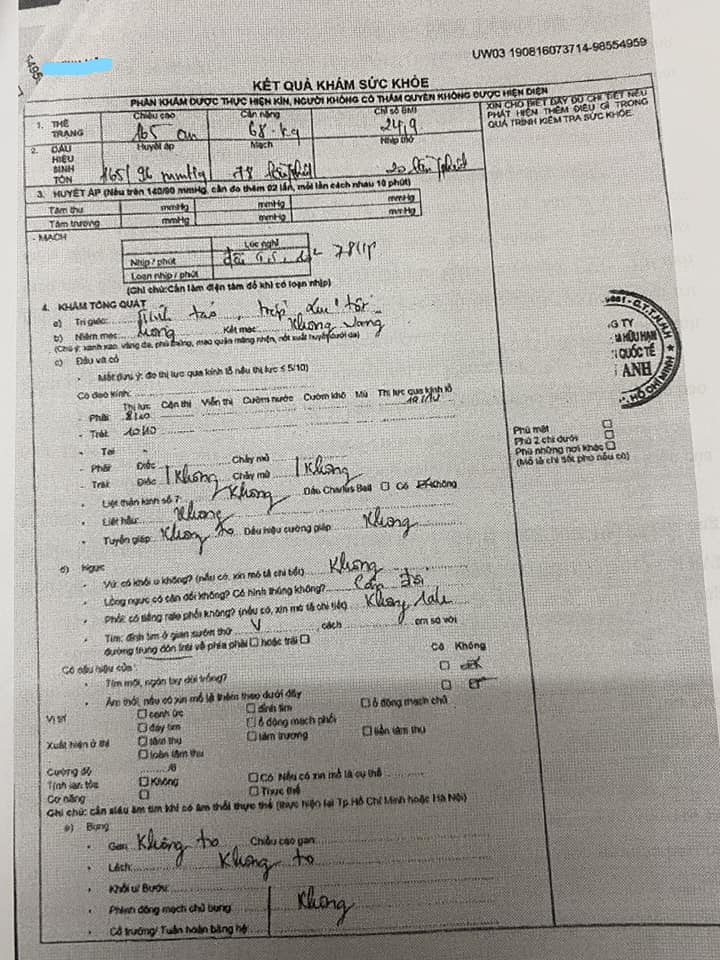 UW03 190816073714-98554959
KẾT QUẢ KHÁM SỨC KHỎE
PHẦN KHÁM ĐƯỢC THỰC HIỆN KÍN, NGƯỜI KHÔNG CÓ THẨM QUYỀN KHÔNG ĐƯỢC HIỆN DIỆN
1. THỂ TRẠNG Chiều cao 165 cm Cân nặng 68 kg Chỉ số BMI 24,9
XIN CHO BIẾT ĐẦY ĐỦ CHI TIẾT NẾU PHÁT HIỆN THÊM ĐIỀU GÌ TRONG QUÁ TRÌNH KIỂM TRA SỨC KHỎE.
2. DẤU HIỆU SINH TỒN Huyết áp 165/96 mmHg Mạch 78 lần/phút Nhịp thở 20 lần/phút
3. HUYẾT ÁP (Nếu trên 140/90 mmHg, cần đo thêm 02 lần, mỗi lần cách nhau 10 phút)
Tâm thu mmHg mmHg mmHg
Tâm trương mmHg mmHg mmHg
- MẠCH
Lúc nghỉ
Nhịp / phút 78l/p
Loạn nhịp / phút
(Ghi chú: Cần làm điện tâm đồ khi có loạn nhịp)
4. KHÁM TỔNG QUÁT
a) Tri giác: tỉnh táo, tiếp xúc tốt
b) Niêm mạc: hồng Kết mạc: Không vàng
(Chú ý: xanh xao, vàng da, phù thũng, mao quản mạng nhện, nốt xuất huyết dưới da)
c) Đầu và cổ
- Mắt (lưu ý: đo thị lực qua kính lỗ nếu thị lực ≤ 5/10)
Có đeo kính:
Thị lực Cận thị Viễn thị Cườm nước Cườm khô Mù Thị lực qua kính lỗ
- Phải: 8/10 10/10
- Trái: 10/10
- Tai
- Phải Điếc Chảy mủ
- Trái Điếc Không Chảy mủ Không
- Liệt thần kinh số 7: Không Dấu Charles Bell □ Có Không
- Liệt hầu: Không
- Tuyến giáp: Không to Dấu hiệu cường giáp Không
Phù mặt □
Phù 2 chi dưới □
Phù những nơi khác □
(Mô tả chi tiết phù nếu có)
d) Ngực
- Vú: có khối u không? (nếu có, xin mô tả chi tiết) Không
- Lồng ngực có cân đối không? Có hình thùng không? Cân đối
- Phổi: có tiếng rale phổi không? (nếu có, xin mô tả chi tiết) Không rale
- Tim: đỉnh tim ở gian sườn thứ V, cách cm so với
đường trung đòn lệch về phía phải □ hoặc trái □
Có dấu hiệu của: Có Không
- Tím môi, ngón tay dùi trống? □
- Âm thổi, nếu có xin mô tả thêm theo dưới đây □
Vị trí □ cạnh ức □ đỉnh tim □ ổ động mạch chủ
□ đáy tim □ ổ động mạch phổi
Xuất hiện ở thì □ tâm thu □ tâm trương □ tiền tâm thu
□ toàn tâm thu
Cường độ ........./6
Tính lan tỏa □ Không □ Có. Nếu có xin mô tả cụ thể
Cơ năng □ □ Thực thể
Ghi chú: cần siêu âm tim khi có âm thổi thực thể (thực hiện tại Tp.Hồ Chí Minh hoặc Hà Nội)
e) Bụng
- Gan: Không to Chiều cao gan:
- Lách: Không to
- Khối u/ Bướu:
- Phình động mạch chủ bụng Không
- Cổ trướng/ Tuần hoàn bàng hệ
G TY
HỮU HẠN
QUỐC TẾ
ANH
HỒ CHÍ MINH